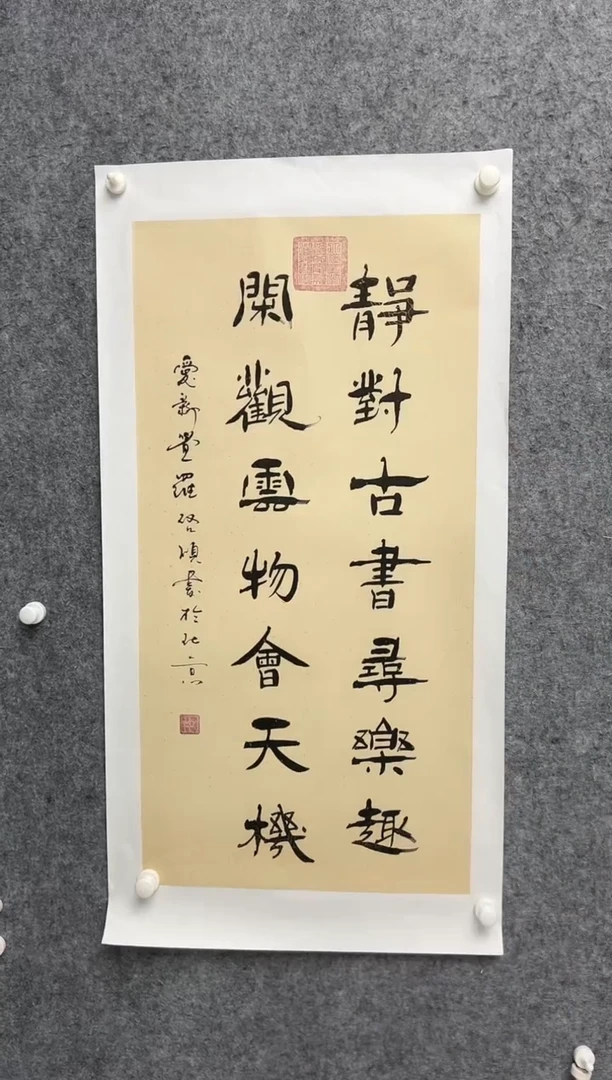 靜對古書尋樂趣
閑觀雲物會天機
愛新覺羅啓順書於北京